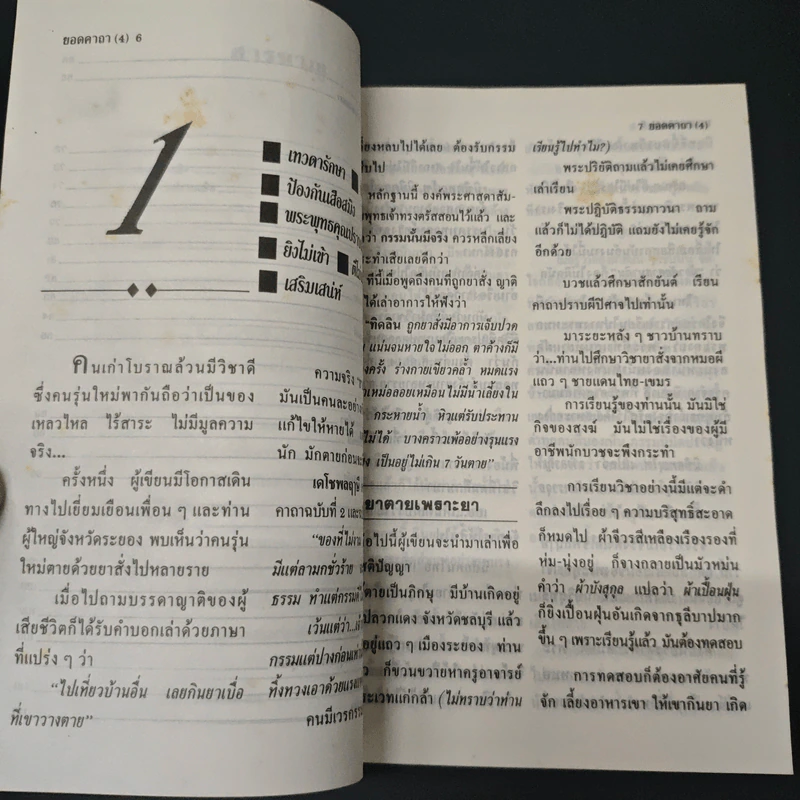 ยอดคาถา (4) 6
1
เทวดารักษา
ป้องกันเสือสมิง
พระพุทธคุณ
ยิงไม่เข้า
เสริมเสน่ห์
คนเก่าโบราณล้วนมีวิชาดี
ซึ่งคนรุ่นใหม่พากันถือว่าเป็นของ
เหลวไหล ไร้สาระ ไม่มีมูลความ
จริง...
ครั้งหนึ่ง ผู้เขียนมีโอกาสเดิน
ทางไปเยี่ยมเยือนเพื่อน ๆ และท่าน
ผู้ใหญ่จังหวัดระยอง พบเห็นว่าคนรุ่น
ใหม่ตายด้วยยาสั่งไปหลายราย
เมื่อไปถามบรรดาญาติของผู้
เสียชีวิตก็ได้รับคำบอกเล่าด้วยภาษา
ที่แปร่ง ๆ ว่า
"ไปเที่ยวบ้านอื่น เลยกินยาเบื่อ
ที่เขาวางตาย"
ความจริง
มันเป็นคนละอย่าง
แก้ไขให้หายได้
นัก มักตายก่อน
เดโชพลฤ
คาถาฉบับที่ 2 และ
"ของที่ไม่
มีแต่ลามกชั่วร้าย
ธรรม ทำแต่กรรม
เว้นแต่ว่า...
กรรมแต่ปางก่อน
ทิ้งทวงเอาด้วยแรง
คนมีเวรกรรม
หลบไปได้เลย ต้องรับกรรม
ไป
หลักฐานนี้ องค์พระศาสดาสัม-
พุทธเจ้าทรงตรัสสอนไว้แล้ว และ
ว่า กรรมนั้นมีจริง ควรหลีกเลี่ยง
ทำเสียเลยดีกว่า
ทีนี้เมื่อพูดถึงคนที่ถูกยาสั่ง ญาติ
ได้เล่าอาการให้ฟังว่า
"ทิดลิน ถูกยาสั่งมีอาการเจ็บปวด
แน่นจนหายใจไม่ออก ตาค้างก็มี
ครั้ง ร่างกายเขียวคล้ำ หมดแรง
เหม่อลอยเหมือนไม่มีน้ำเลี้ยงใน
กระหายน้ำ หิวแต่รับประทาน
ไม่ได้ บางคราวเพ้ออย่างรุนแรง
เป็นอยู่ไม่เกิน 7 วันตาย"
ยาตายเพราะยา
ไปนี้ผู้เขียนจะนำมาเล่าเพื่อ
สติปัญญา
ตายเป็นภิกษุ มีบ้านเกิดอยู่
ปลวกแดง จังหวัดชลบุรี แล้ว
อยู่แถว ๆ เมืองระยอง ท่าน
ก็ขวนขวายหาครูอาจารย์
เวทแก่กล้า (ไม่ทราบว่าท่าน
7 ยอดคาถา (4)
เรียนรู้ไปทำไม?)
พระปริยัติถามแล้วไม่เคยศึกษา
เล่าเรียน
พระปฏิบัติธรรมภาวนา ถาม
แล้วก็ไม่ได้ปฏิบัติ แถมยังไม่เคยรู้จัก
อีกด้วย
บวชแล้วศึกษาสักยันต์ เรียน
คาถาปราบผีปีศาจไปเท่านั้น
มาระยะหลัง ๆ ชาวบ้านทราบ
ว่า...ท่านไปศึกษาวิชายาสั่งจากหมอผี
แถว ๆ ชายแดนไทย-เขมร
การเรียนรู้ของท่านนั้น มันมิใช่
กิจของสงฆ์ มันไม่ใช่เรื่องของผู้มี
อาชีพนักบวชจะพึงกระทำ
การเรียนวิชาอย่างนี้มีแต่จะดำ
ลึกลงไปเรื่อย ๆ ความบริสุทธิ์สะอาด
ก็หมดไป ผ้าจีวรสีเหลืองเรืองรองที่
ห่ม-นุ่งอยู่ ก็จางกลายเป็นมัวหม่น
คำว่า ผ้าบังสุกุล แปลว่า ผ้าเปื้อนฝุ่น
ก็ยิ่งเปื้อนฝุ่นอันเกิดจากธุลีบาปมาก
ขึ้น ๆ เพราะเรียนรู้แล้ว มันต้องทดสอบ
การทดสอบก็ต้องอาศัยคนที่รู้
จัก เลี้ยงอาหารเขา ให้เขากินยา เกิด